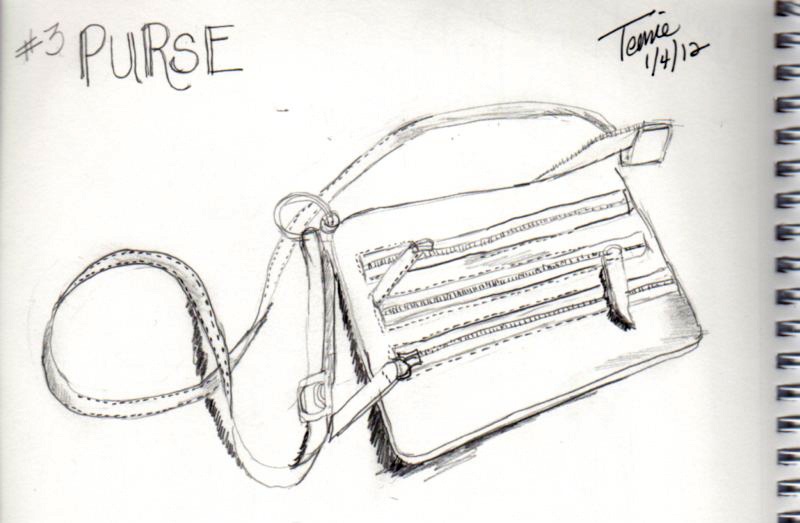 #3 PURSE
Temie
1/4/12